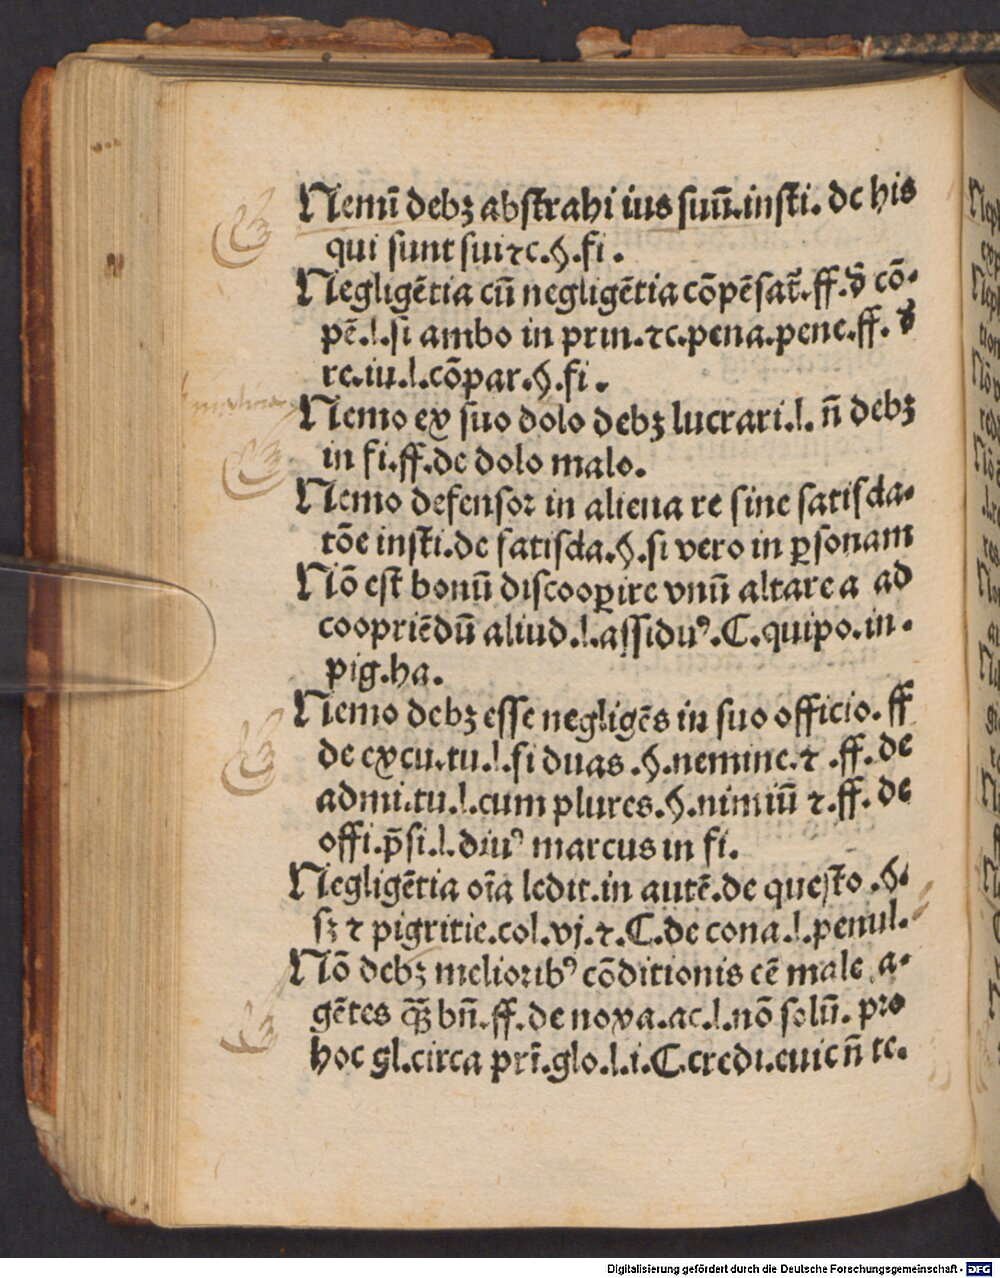 Nemī debꝫ abstrahi ius suū.insti. de his
qui sunt sui ⁊c.§.fi.
Negligētia cū negligētia cōpēsat̄.ff.ð cō-
pē.l.si ambo in prin.⁊c.pena.pene.ff. ð
re.iu.l.cōpar.§.fi.
Nemo ex suo dolo debꝫ lucrari.l. n̄ debꝫ
in fi.ff.de dolo malo.
Nemo defensoꝛ in aliena re sine satisda-
tōe insti.de satisda.§.si vero in ꝑsonam
Nō est bonū discooꝑire vnū altare a ad
coopriēdū aliud.l.assiduꝰ.C.qui po.in-
pig.ha.
Nemo debꝫ esse negligēs in suo officio.ff
de excu.tu.l.si duas.§.nemine.⁊ .ff.de
admi.tu.l.cum plures.§.nimiū ⁊.ff. de
offi.p̄si.l.diuꝰ marcus in fi.
Negligētia oīa ledit.in autē.de questo.§.
sꝫ ⁊ pigritie.col.vj.⁊.C.de cona.l.penul.
Nō debꝫ melioꝛibꝰ cōditionis eē male a-
gētes qꝫ̄ bn̄.ff.de noxa.ac.l.nō solū. pꝛo
hoc gl.circa pri̅.glo.l.i.C.credi.euic n̄ te.
Digitalisierung gefördert durch die Deutsche Forschungsgemeinschaft - DFG